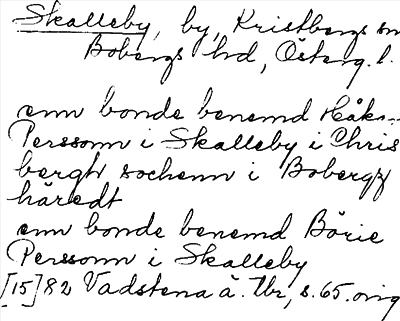 Skalleby, by, Kristbergs sn
Bobergs hd, Österg. l.
enn bonde benemd Håks-
Perssonn i Skalleby i Chris
bergh sochenn i Bobergz
häredt
enn bonde benemd Börie
Perssonn i Skalleby
[15]82 Vadstena ä. tbr, s. 65. orig